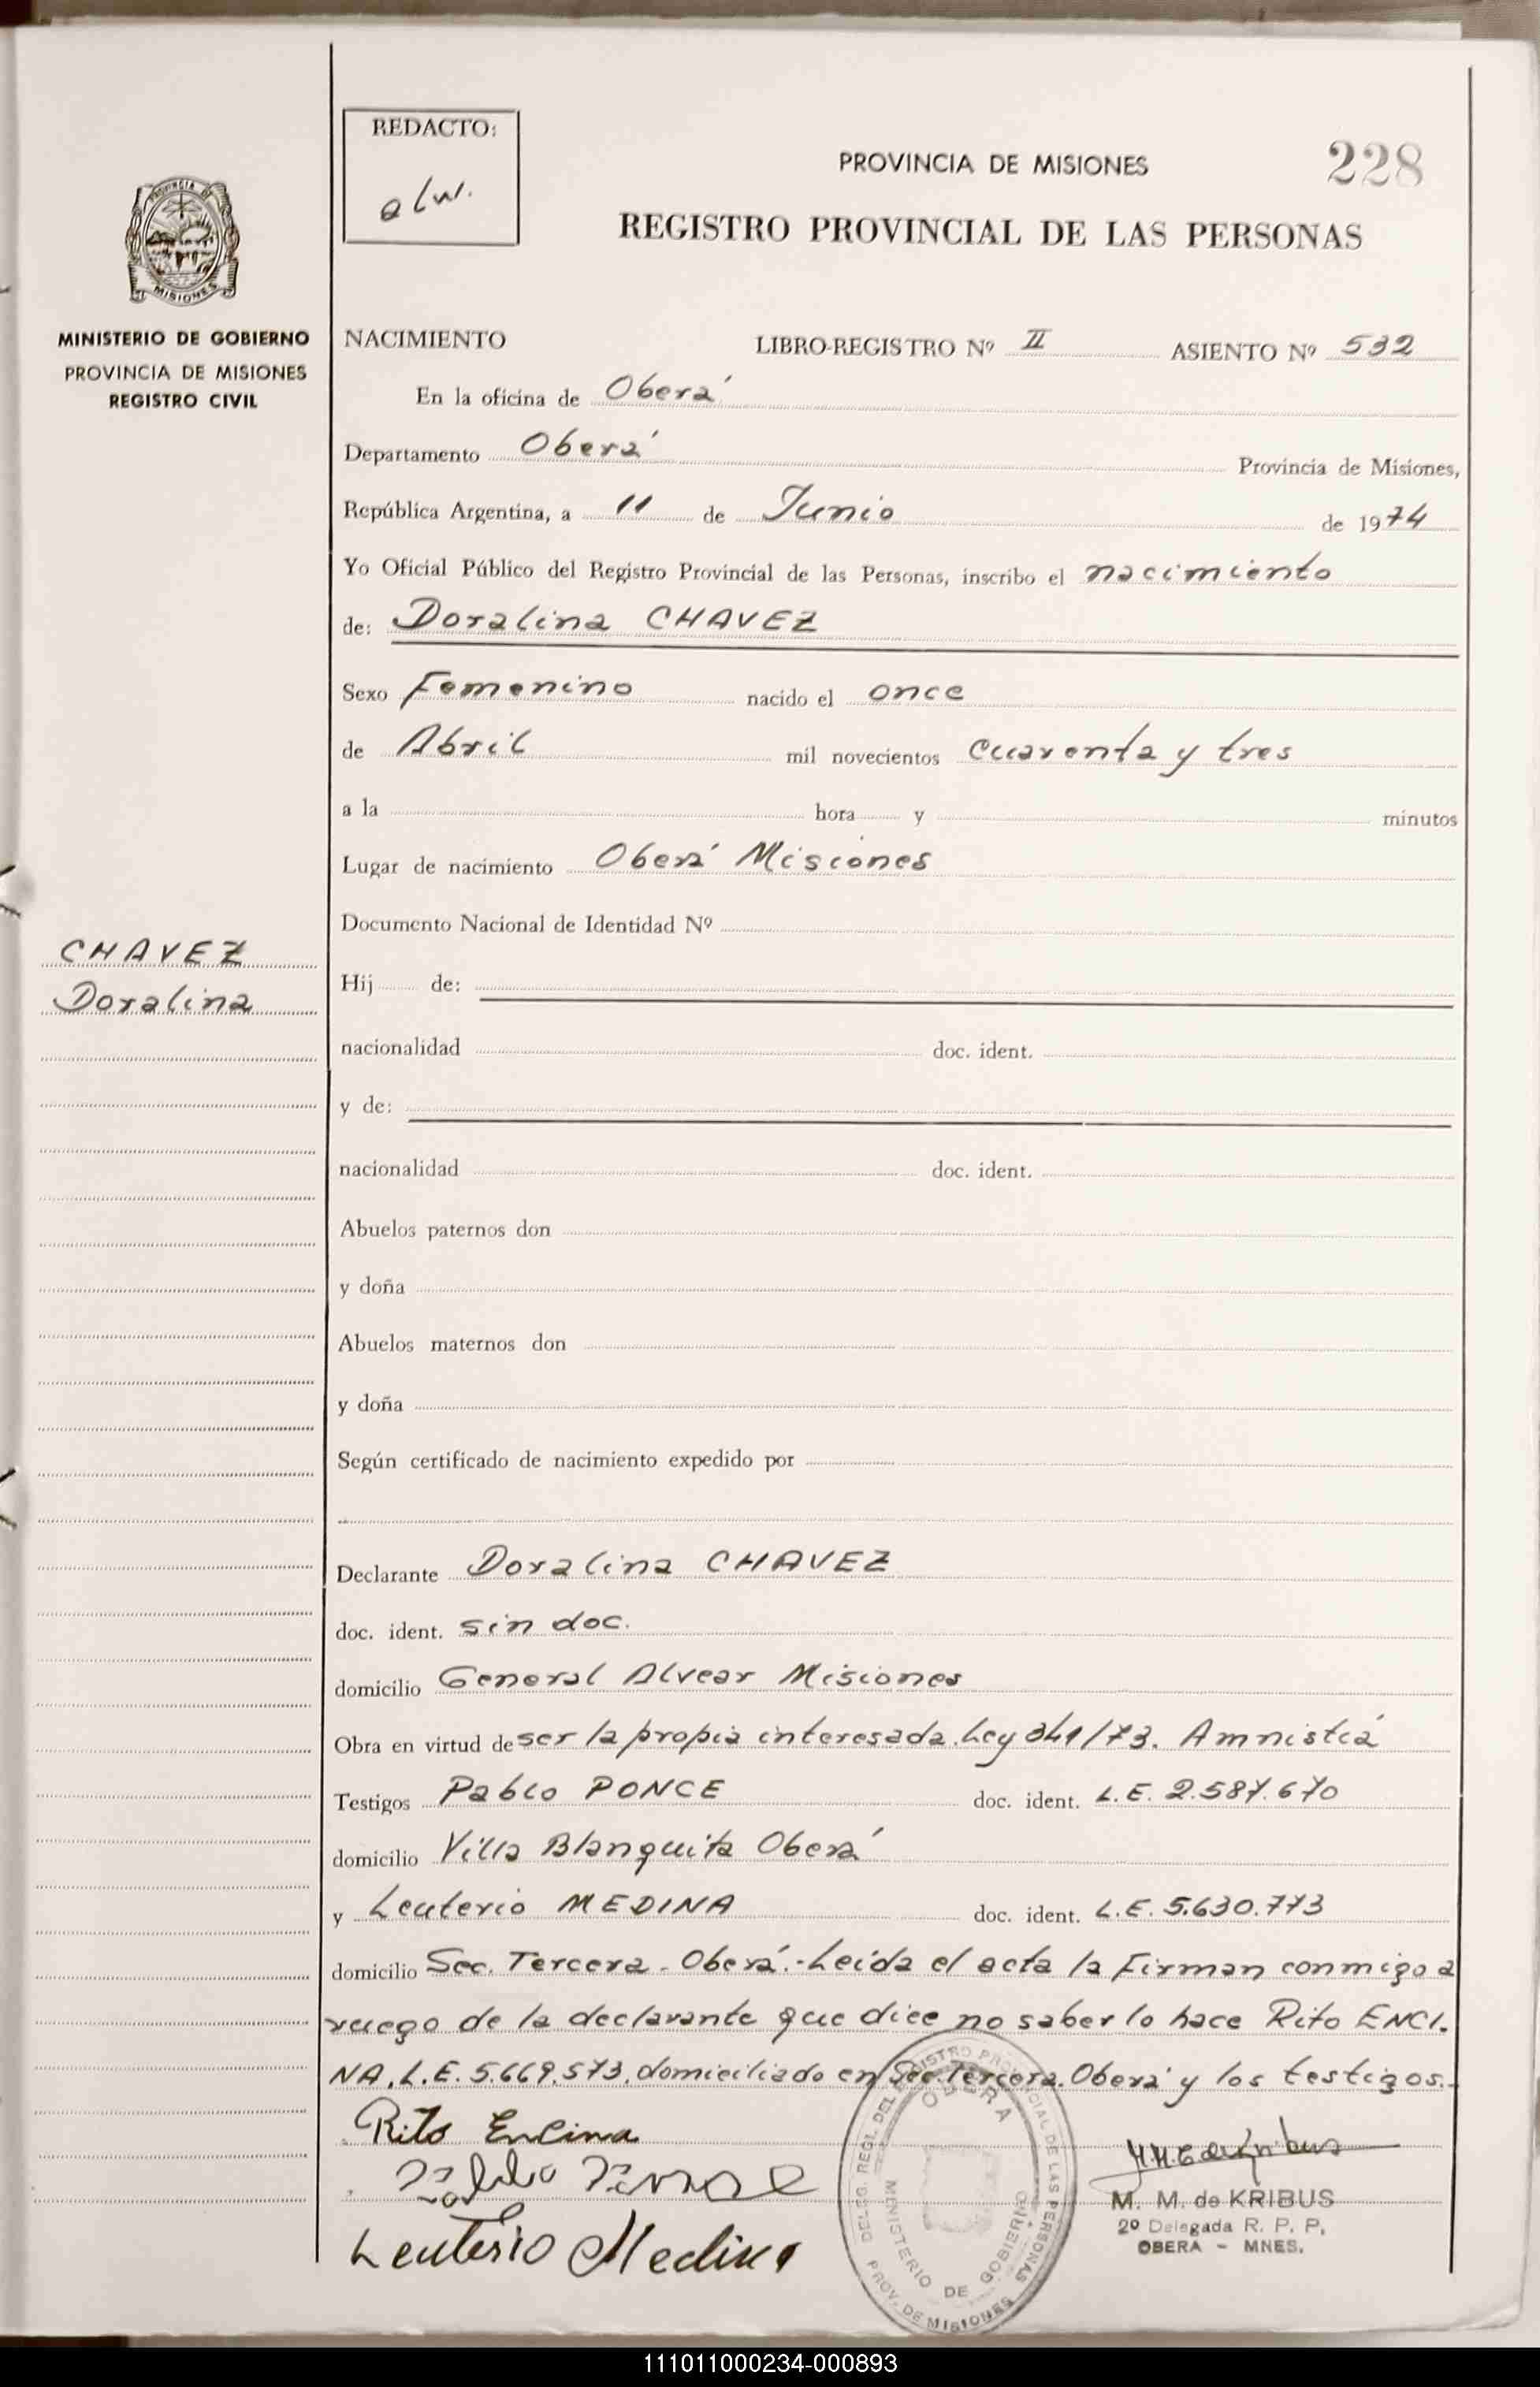 REDACTO:
PROVINCIA DE MISIONES
228
REGISTRO PROVINCIAL DE LAS PERSONAS
PROVINCIA DE
MISIONES
MINISTERIO DE GOBIERNO
PROVINCIA DE MISIONES
REGISTRO CIVIL
NACIMIENTO LIBRO-REGISTRO Nº II ASIENTO Nº 532
En la oficina de Oberá
Departamento Oberá Provincia de Misiones,
República Argentina, a 11 de Junio de 1974
Yo Oficial Público del Registro Provincial de las Personas, inscribo el nacimiento
de: Doralina CHAVEZ
Sexo Femenino nacido el once
de Abril mil novecientos cuarenta y tres
a la hora y minutos
Lugar de nacimiento Oberá Misiones
Documento Nacional de Identidad Nº
CHAVEZ
Doralina
Hij de:
nacionalidad doc. ident.
y de:
nacionalidad doc. ident.
Abuelos paternos don
y doña
Abuelos maternos don
y doña
Según certificado de nacimiento expedido por
Declarante Doralina CHAVEZ
doc. ident. sin doc.
domicilio General Alvear Misiones
Obra en virtud de ser la propia interesada. Ley 341/73. Amnistiá
Testigos Pablo PONCE doc. ident. L.E. 2.587.670
domicilio Villa Blanquita Oberá
y Leuterio MEDINA doc. ident. L.E. 5.630.773
domicilio Sec. Tercera - Oberá.- Leída el acta la Firman conmigo a
ruego de la declarante que dice no saber lo hace Rito ENCI-
NA. L.E. 5.669.573. domiciliado en Sec. Tercera. Oberá y los testigos.
Rito Encina
Leuterio Medina
DELEG. REGI. DEL REGISTRO PROVINCIAL DE LAS PERSONAS
OBERA
MINISTERIO DE GOBIERNO
PROV. DE MISIONES
M. M. de KRIBUS
2º Delegada R. P. P.
OBERA - MNES.
111011000234-000893